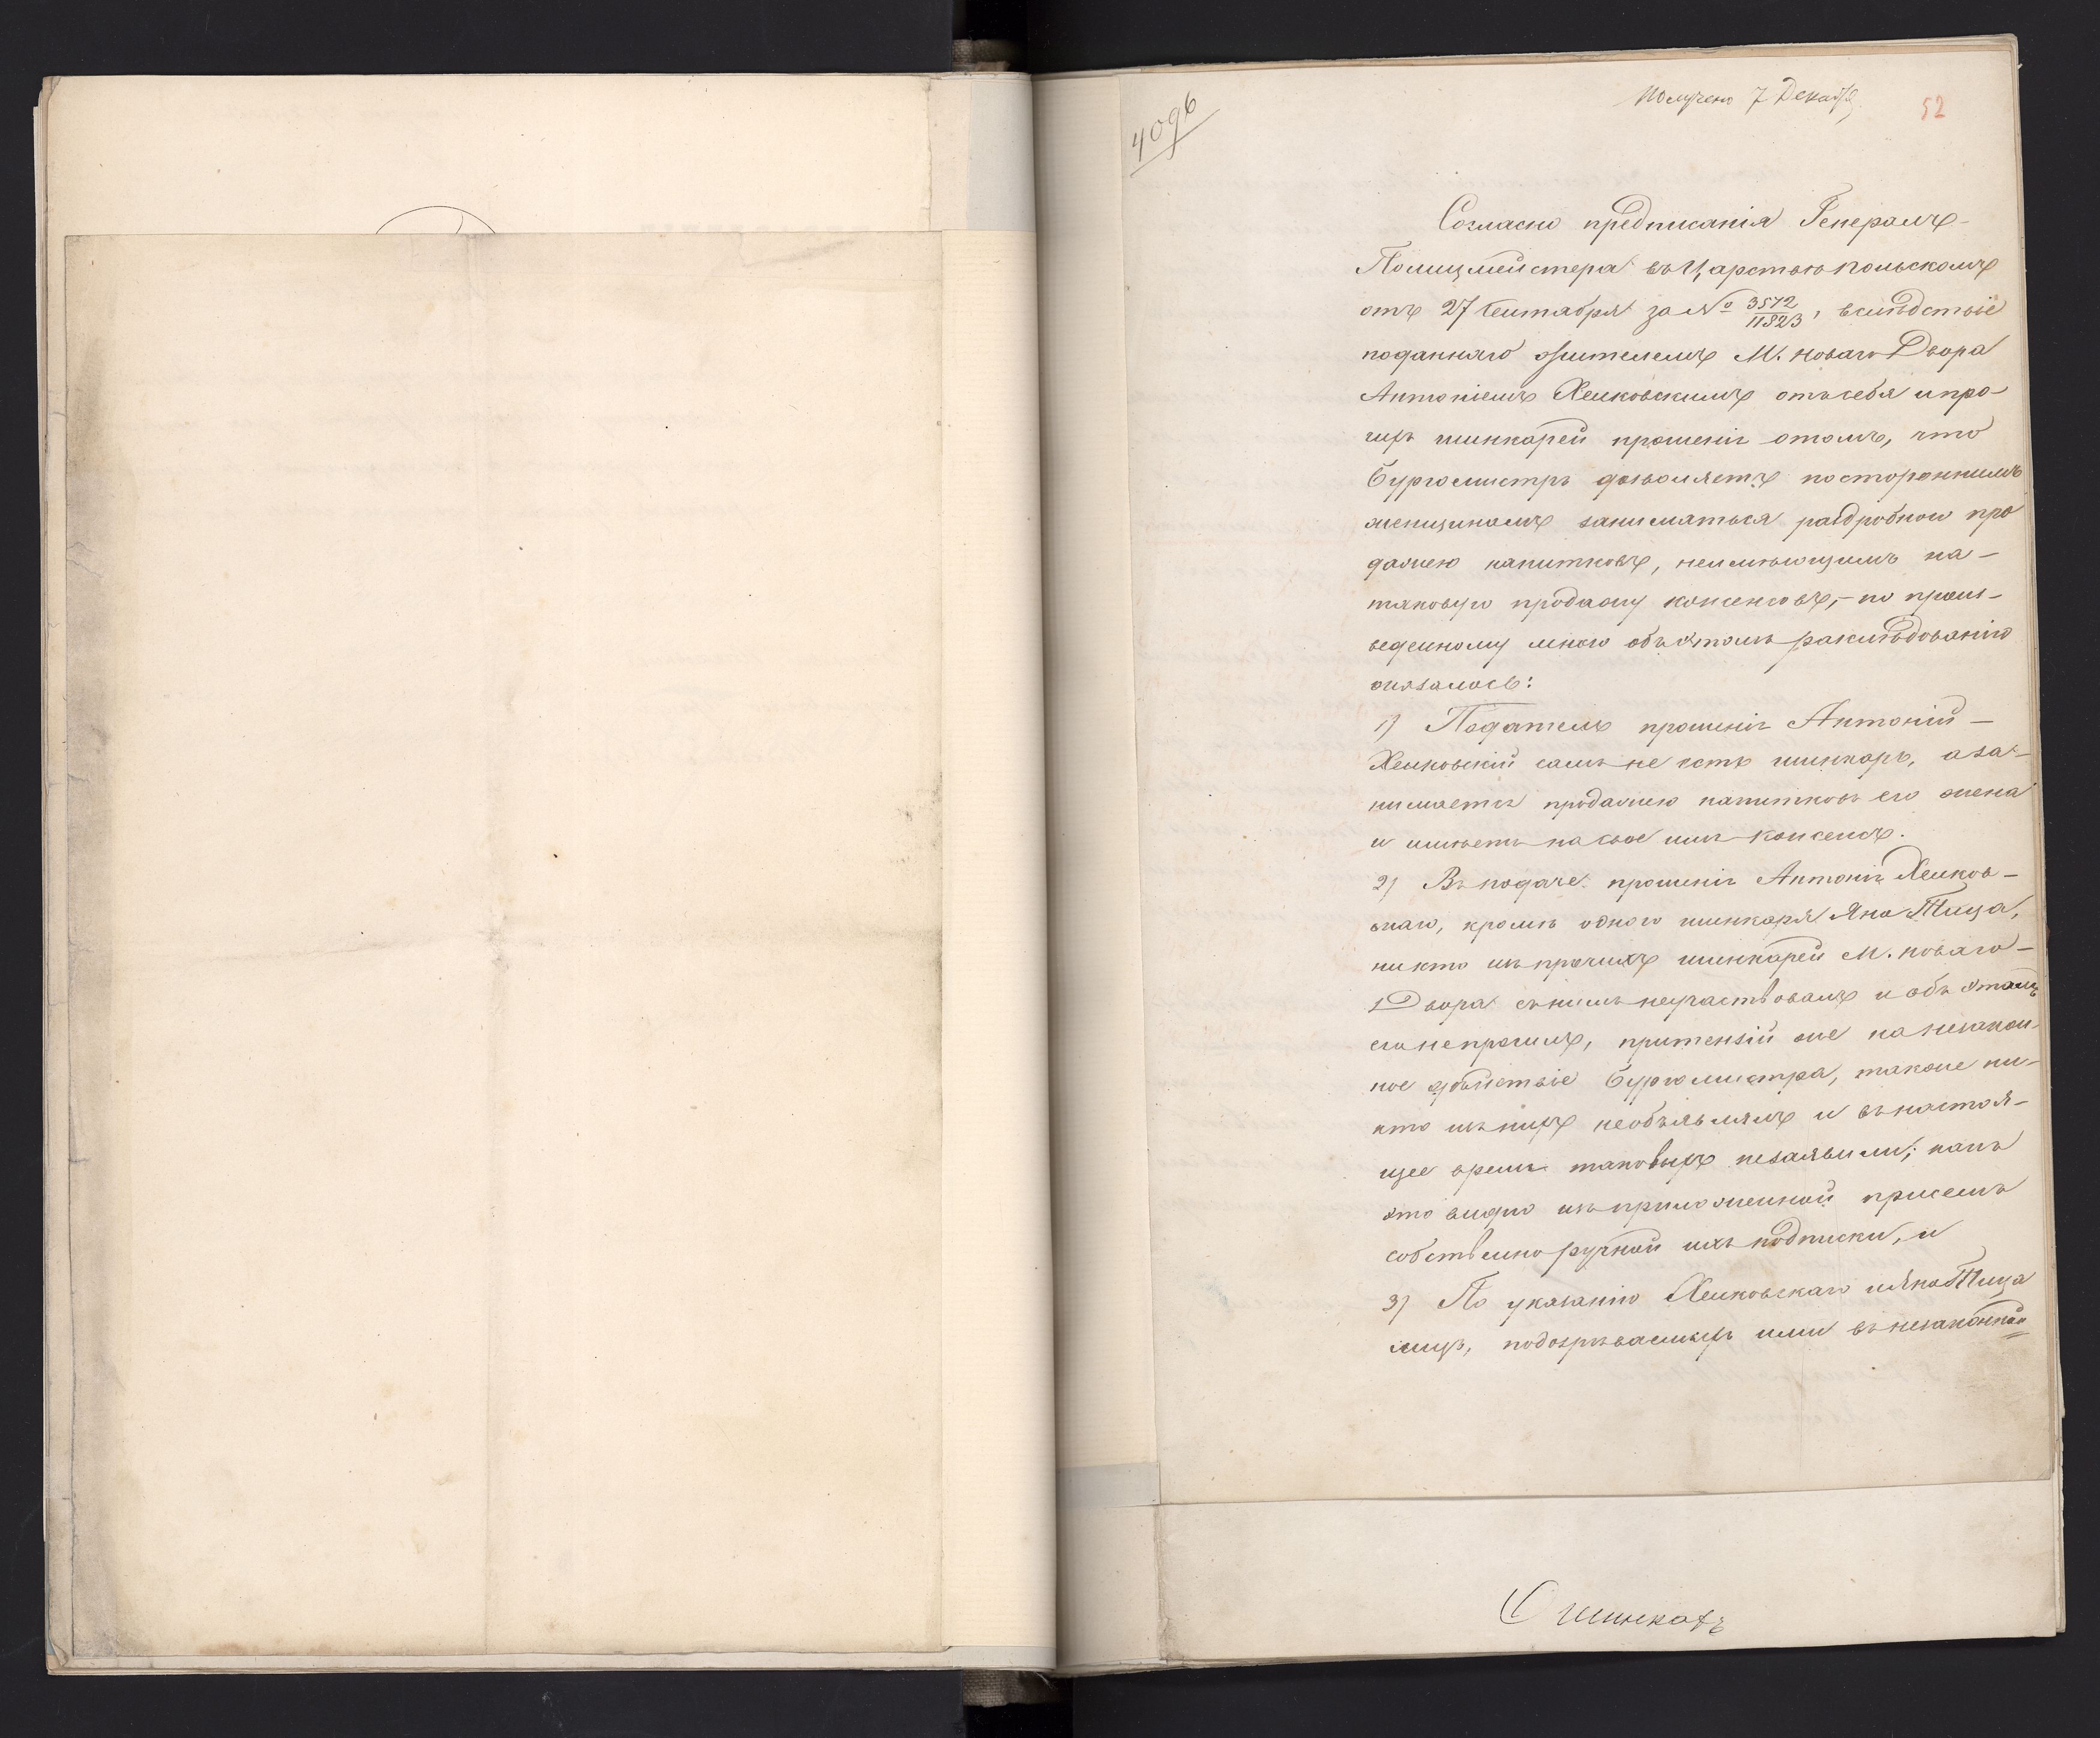 4096
Получено 7 Декабря
52
Согласно предписанія Генералъ-
Полицмейстера въ Царствѣ Польскомъ
отъ 27 Сентября за № 3572/11823, вслѣдствіе
поданнаго жителемъ М. Новаго Двора
Антоніемъ Хелковскимъ отъ себя и про-
чихъ шинкарей прошенія о томъ, что
Бургомистръ дозволяетъ постороннимъ
женщинамъ заниматься раздробною про
дажею напитковъ, неимѣющимъ на-
таковую продажу консенсовъ, - по произ-
веденному мною объ этомъ разслѣдованію
оказалось:
1) Податель прошенія Антоній -
Хелковскій самъ не есть шинкарь, а за-
нимается продажею напитковъ его жена
и имѣетъ на свое имя консенсъ.
2) Въ подаче прошенія Антонія Хелков-
скаго, кромѣ одного шинкаря Яна Тица,
никто изъ прочихъ шинкарей М. Новаго-
Двора съ нимъ неучаствовалъ и объ этомъ
его непросилъ, притензій же на незакон-
ное дѣйствіе Бургомистра, также ни-
кто изъ нихъ необъявлялъ и въ настоя-
щее время таковыхъ незаявили; какъ
это видно изъ приложенной при семъ
собственноручной ихъ подписки, и
3) По указанію Хелковскаго и Яна Тица
лицъ, подозрѣваемыхъ ими въ незаконной
О шинкахъ